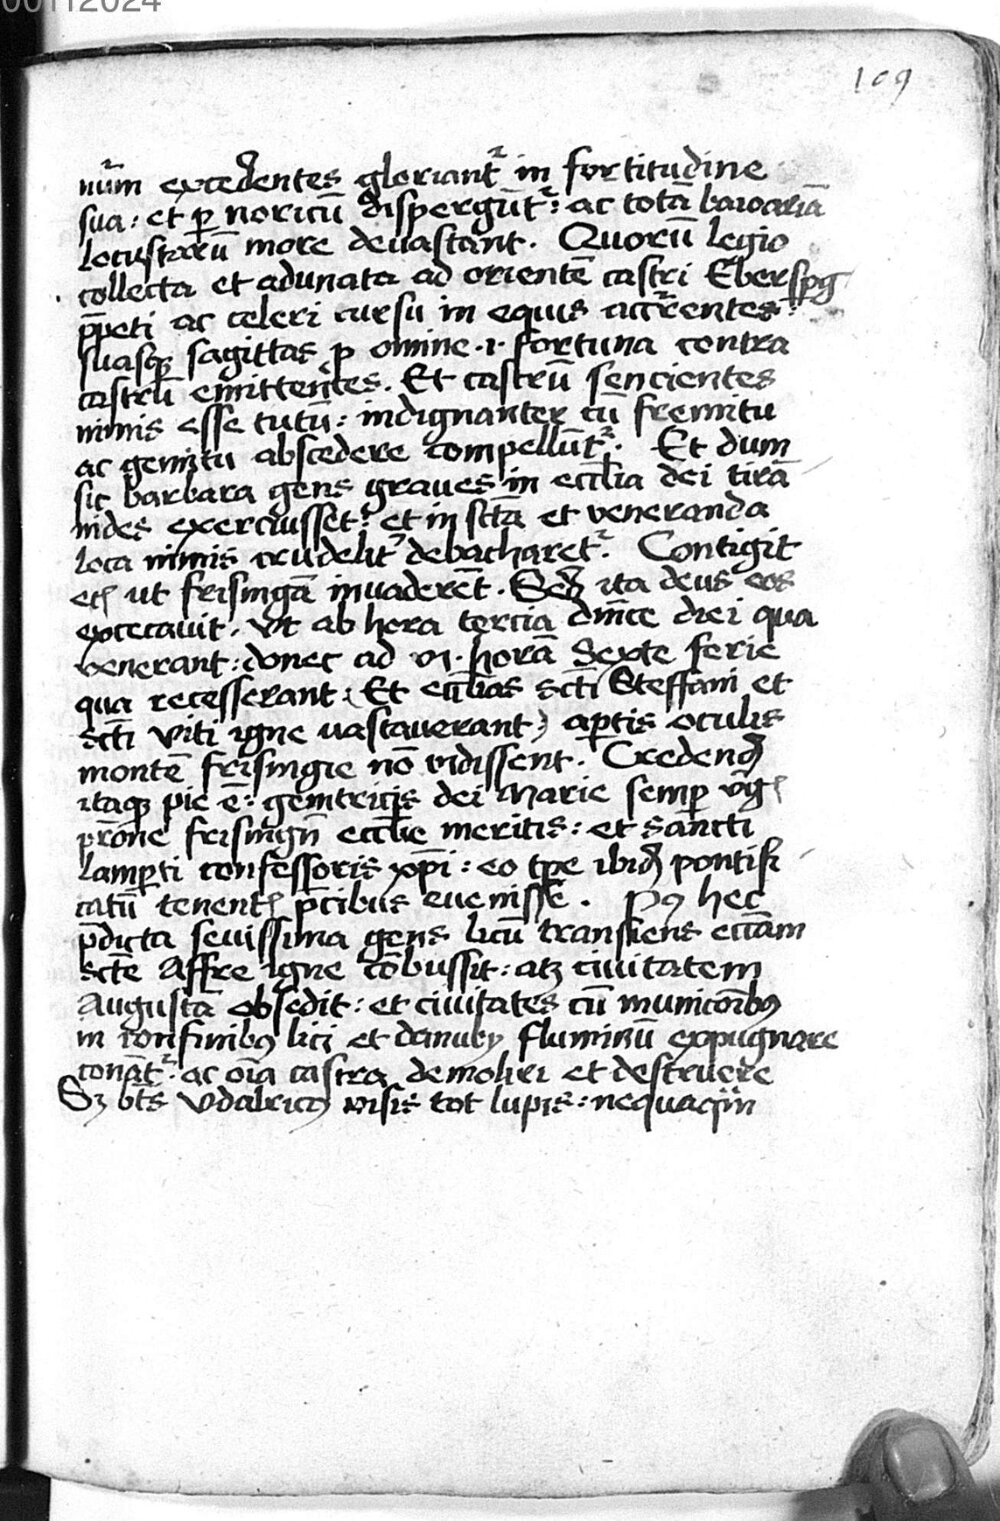 00112024
109
nūm excedentes gloriantr in fortitudine
sua : et p noricū dispergūtr : ac totā bawariā
locustarū more deuastant . Quorū legio
collecta et adunata ad orientē castri Ebersperg
ppeti ac celeri cursu in equis accurentes :
suasq sagittas p omine .i. fortuna contra
castrū emittentes . Et castrū sencientes
nimis esse tutū : indignanter cū fremitu
ac gemitu abscedere compellūtr . Et dum
sic barbara gens graues in eccl̄ia dei tirā
nides exercuisset : et in sctā et veneranda
loca nimis crudelitr debacharetr . Contigit
ut frisingā inuaderēt . Sed ita deus eos
excecauit . vt ab hora tercia dn̄ice diei qua
venerant : donec ad vi . horā Sexte ferie
qua recesserant . Et eccl̄ias scti Steffani et
scti viti igne vastauerant ) aptis oculis
montē frisingie nō vidissent . Credend
itaq pie ē : genitricis dei Marie semp vig
prōne frisingn̄ eccl̄ie meritis : et sancti
lamperti confessoris xp̄i : eo tp̄e ibid pontifi
catū tenent p̄cibus euenisse . P9 hec
p̄dicta seuissima gens licū transiens eccām
sctē Affre igne cōbussit : atz ciuitatem
Augustā obsedit : et ciuitates cū municōib9
in confinib9 lici et danuby fluminū expugnare
conātr . ac oīa castra demoliri et destruere
Sz bt̄s vdalric9 visis tot lupis : nequaqm